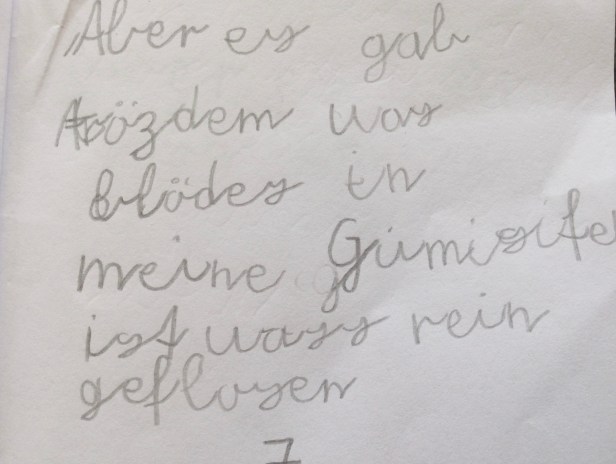 Aber es gab
trözdem was
blödes in
meine Gümisife
ist wass rein
gefloyen
7